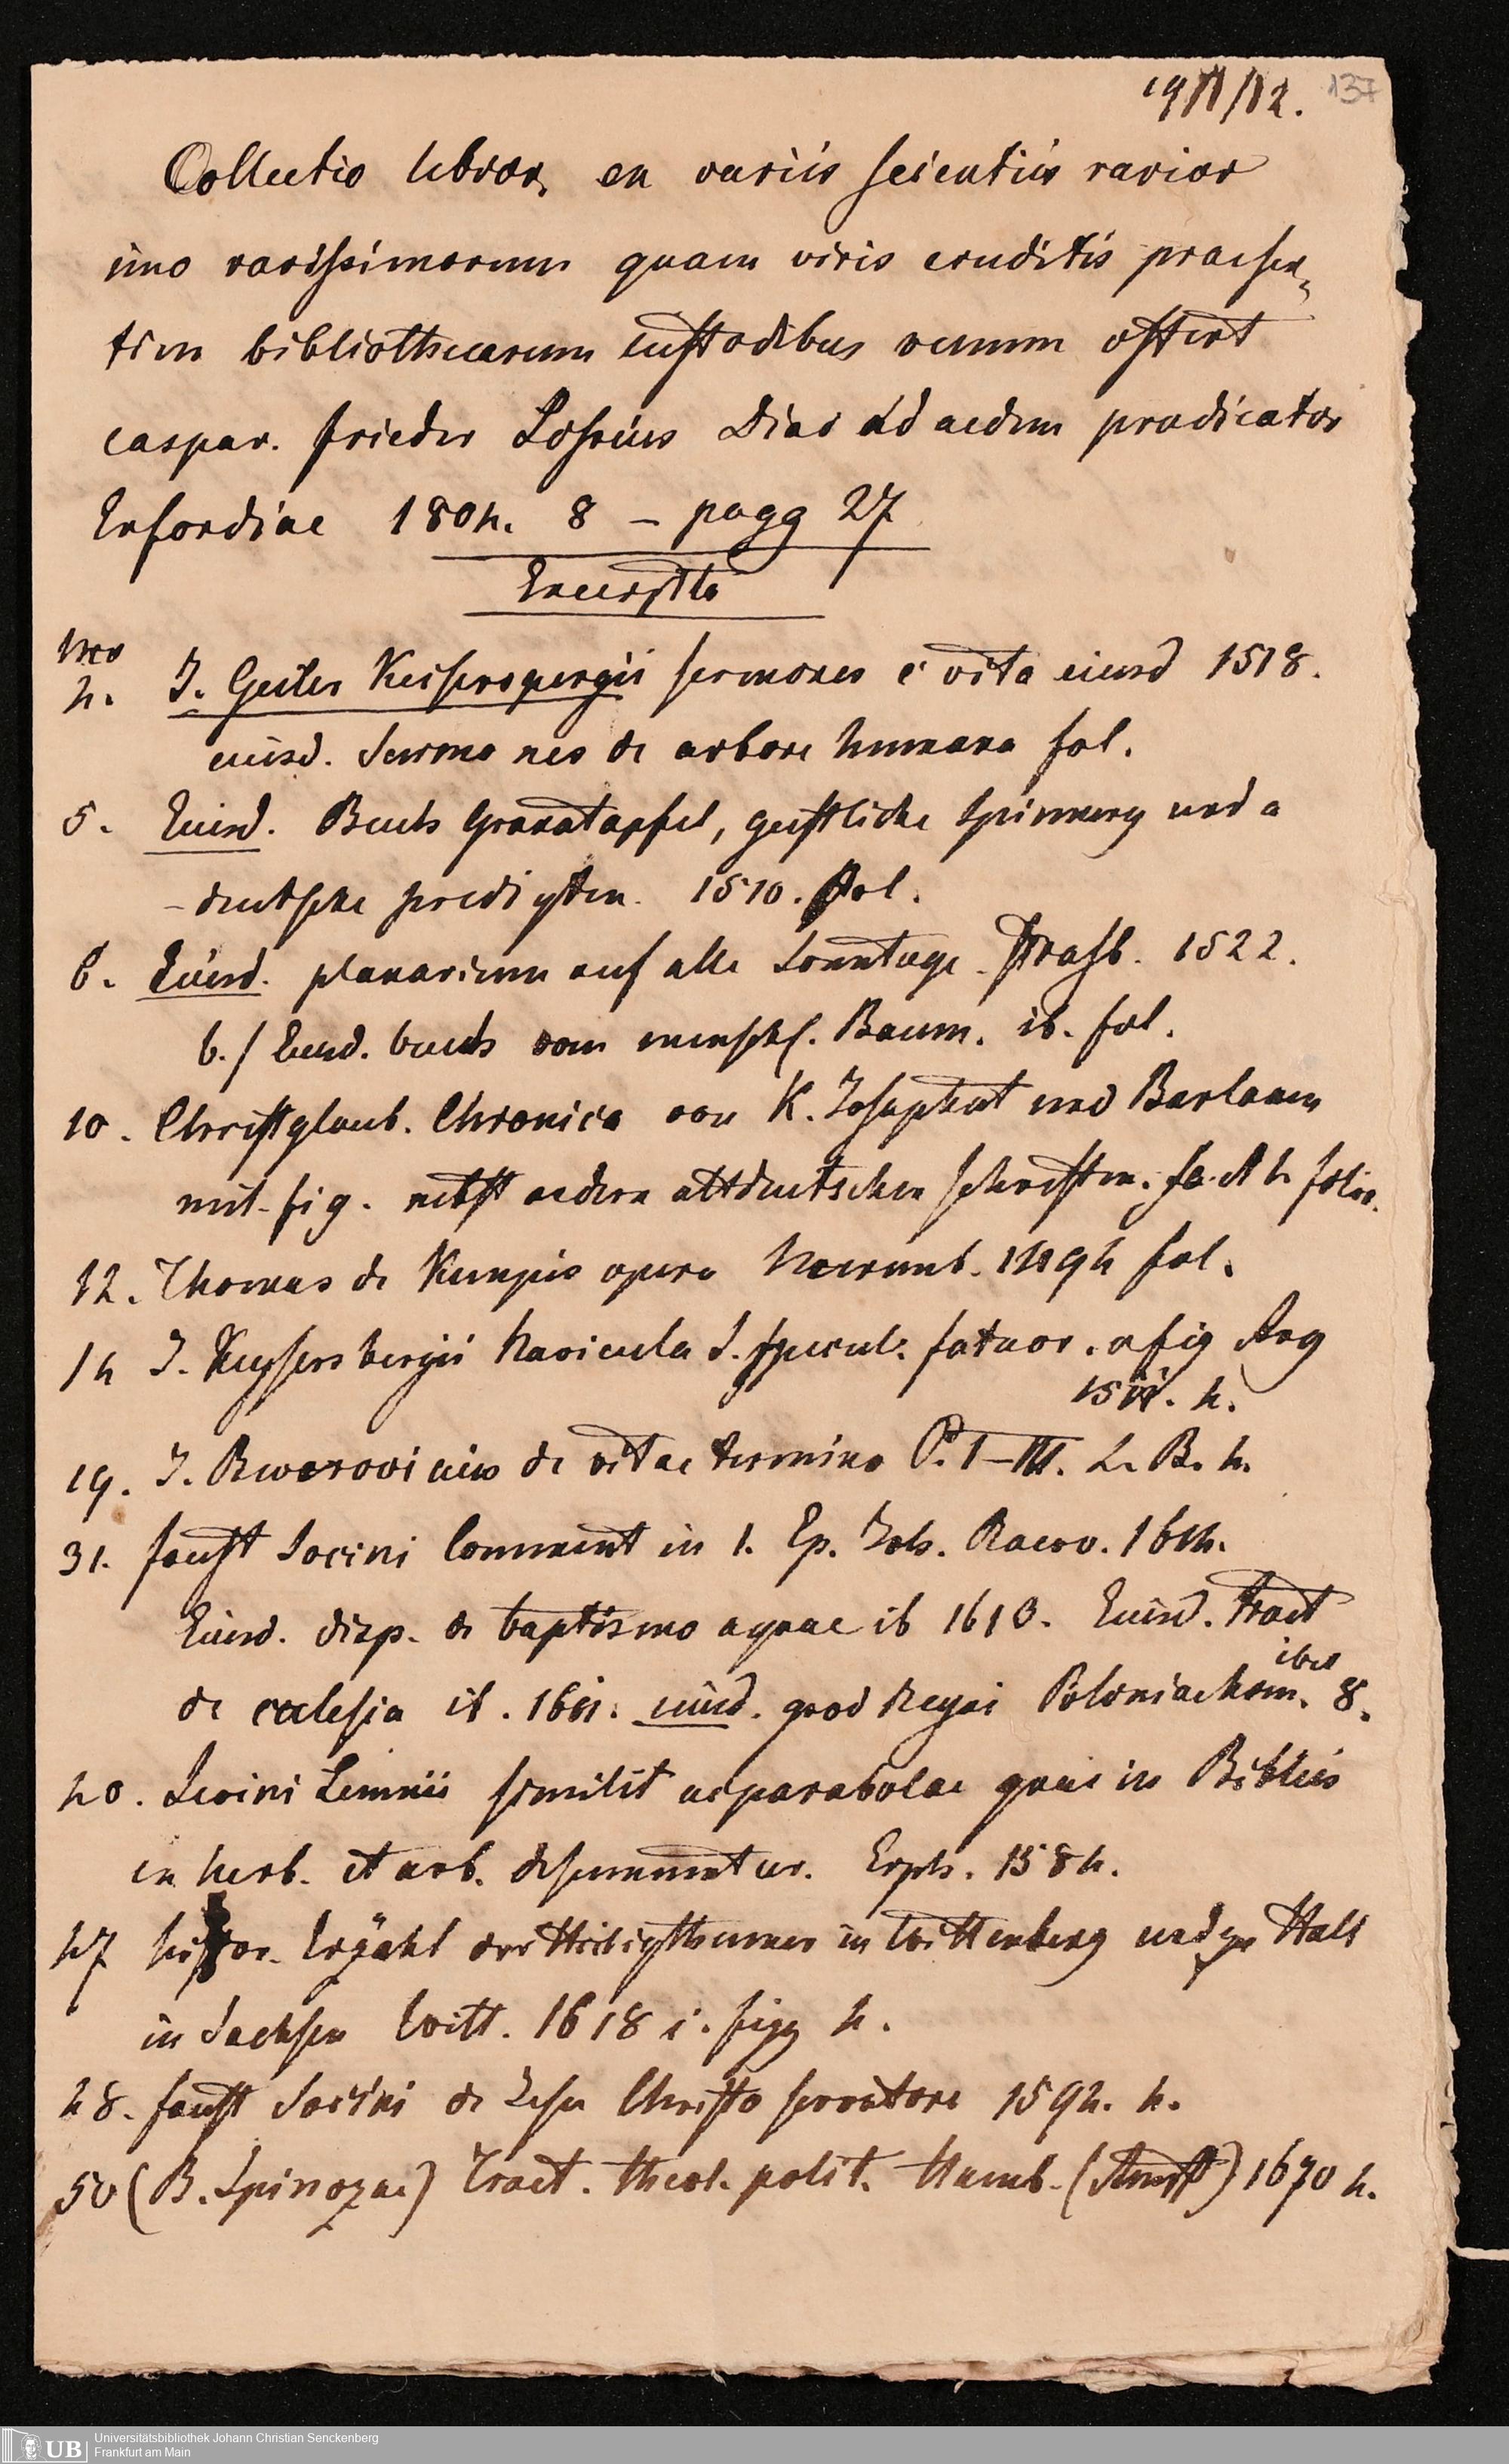 19 11/12. 137
Collectio libror. ex variis scientiis rarior
imo rarissimorum quam viris eruditis praeser„
tim bibliothecarum custodibus venum offert
caspar. frieder Lossius Diac ad aedem pradicator
Erfordiae 1804. 8 – pagg 27
Excerpta
Nro
4. J. Geiler Keiserspergii sermones e vita eiusd 1518.
eiusd. Sermones de arbore humana fol.
5. Eiusd. Buch Granatapfel, geistliche Spinnerg und a
– deutsche predigten. 1510. Fol.
6. Eiusd. planarium auf alle Sonntage. Strasb. 1522.
b./ Eiusd. buch vom menschl. Baum. ib. fol.
10. Christglaub. Chronica von K. Josaphat und Barlaam
mit fig. nebst andern altdeutschen schriften. fol.
12. Thomas de Kempis opera Norimb. 1494 fol.
14 J. Keysersbergii Navicula S. specul. fatuor. c fig Arg
1511. 4.
19. J. Bwerovicius de vitae termino P. I–III. L. B. 4.
31. faust Socini Comment in 1. Ep. Joh. Racov. 1614.
Eiusd. disp. de baptismo aquae ib 1613. Eiusd. Tract
de ecclesia ib. 1611. eiusd. quod Regni Poloniae hom. ibid 8.
40. Levini Lemnii similit ac parabolae quae in Bibliis
ex herb. et arb. desumuntur. Erph. 1584.
47 histor. Erzähl der Heiligthumer in Wittenberg und zu Hall
in Sachsen Witt. 1618 c. figg 4.
48. faust Socini de Jesu Christo servatore 1594. 4.
50 (B. Spinozae) Tract. theol. polit. Hamb. (Amst) 1670 4.
UB Universitätsbibliothek Johann Christian Senckenberg
Frankfurt am Main